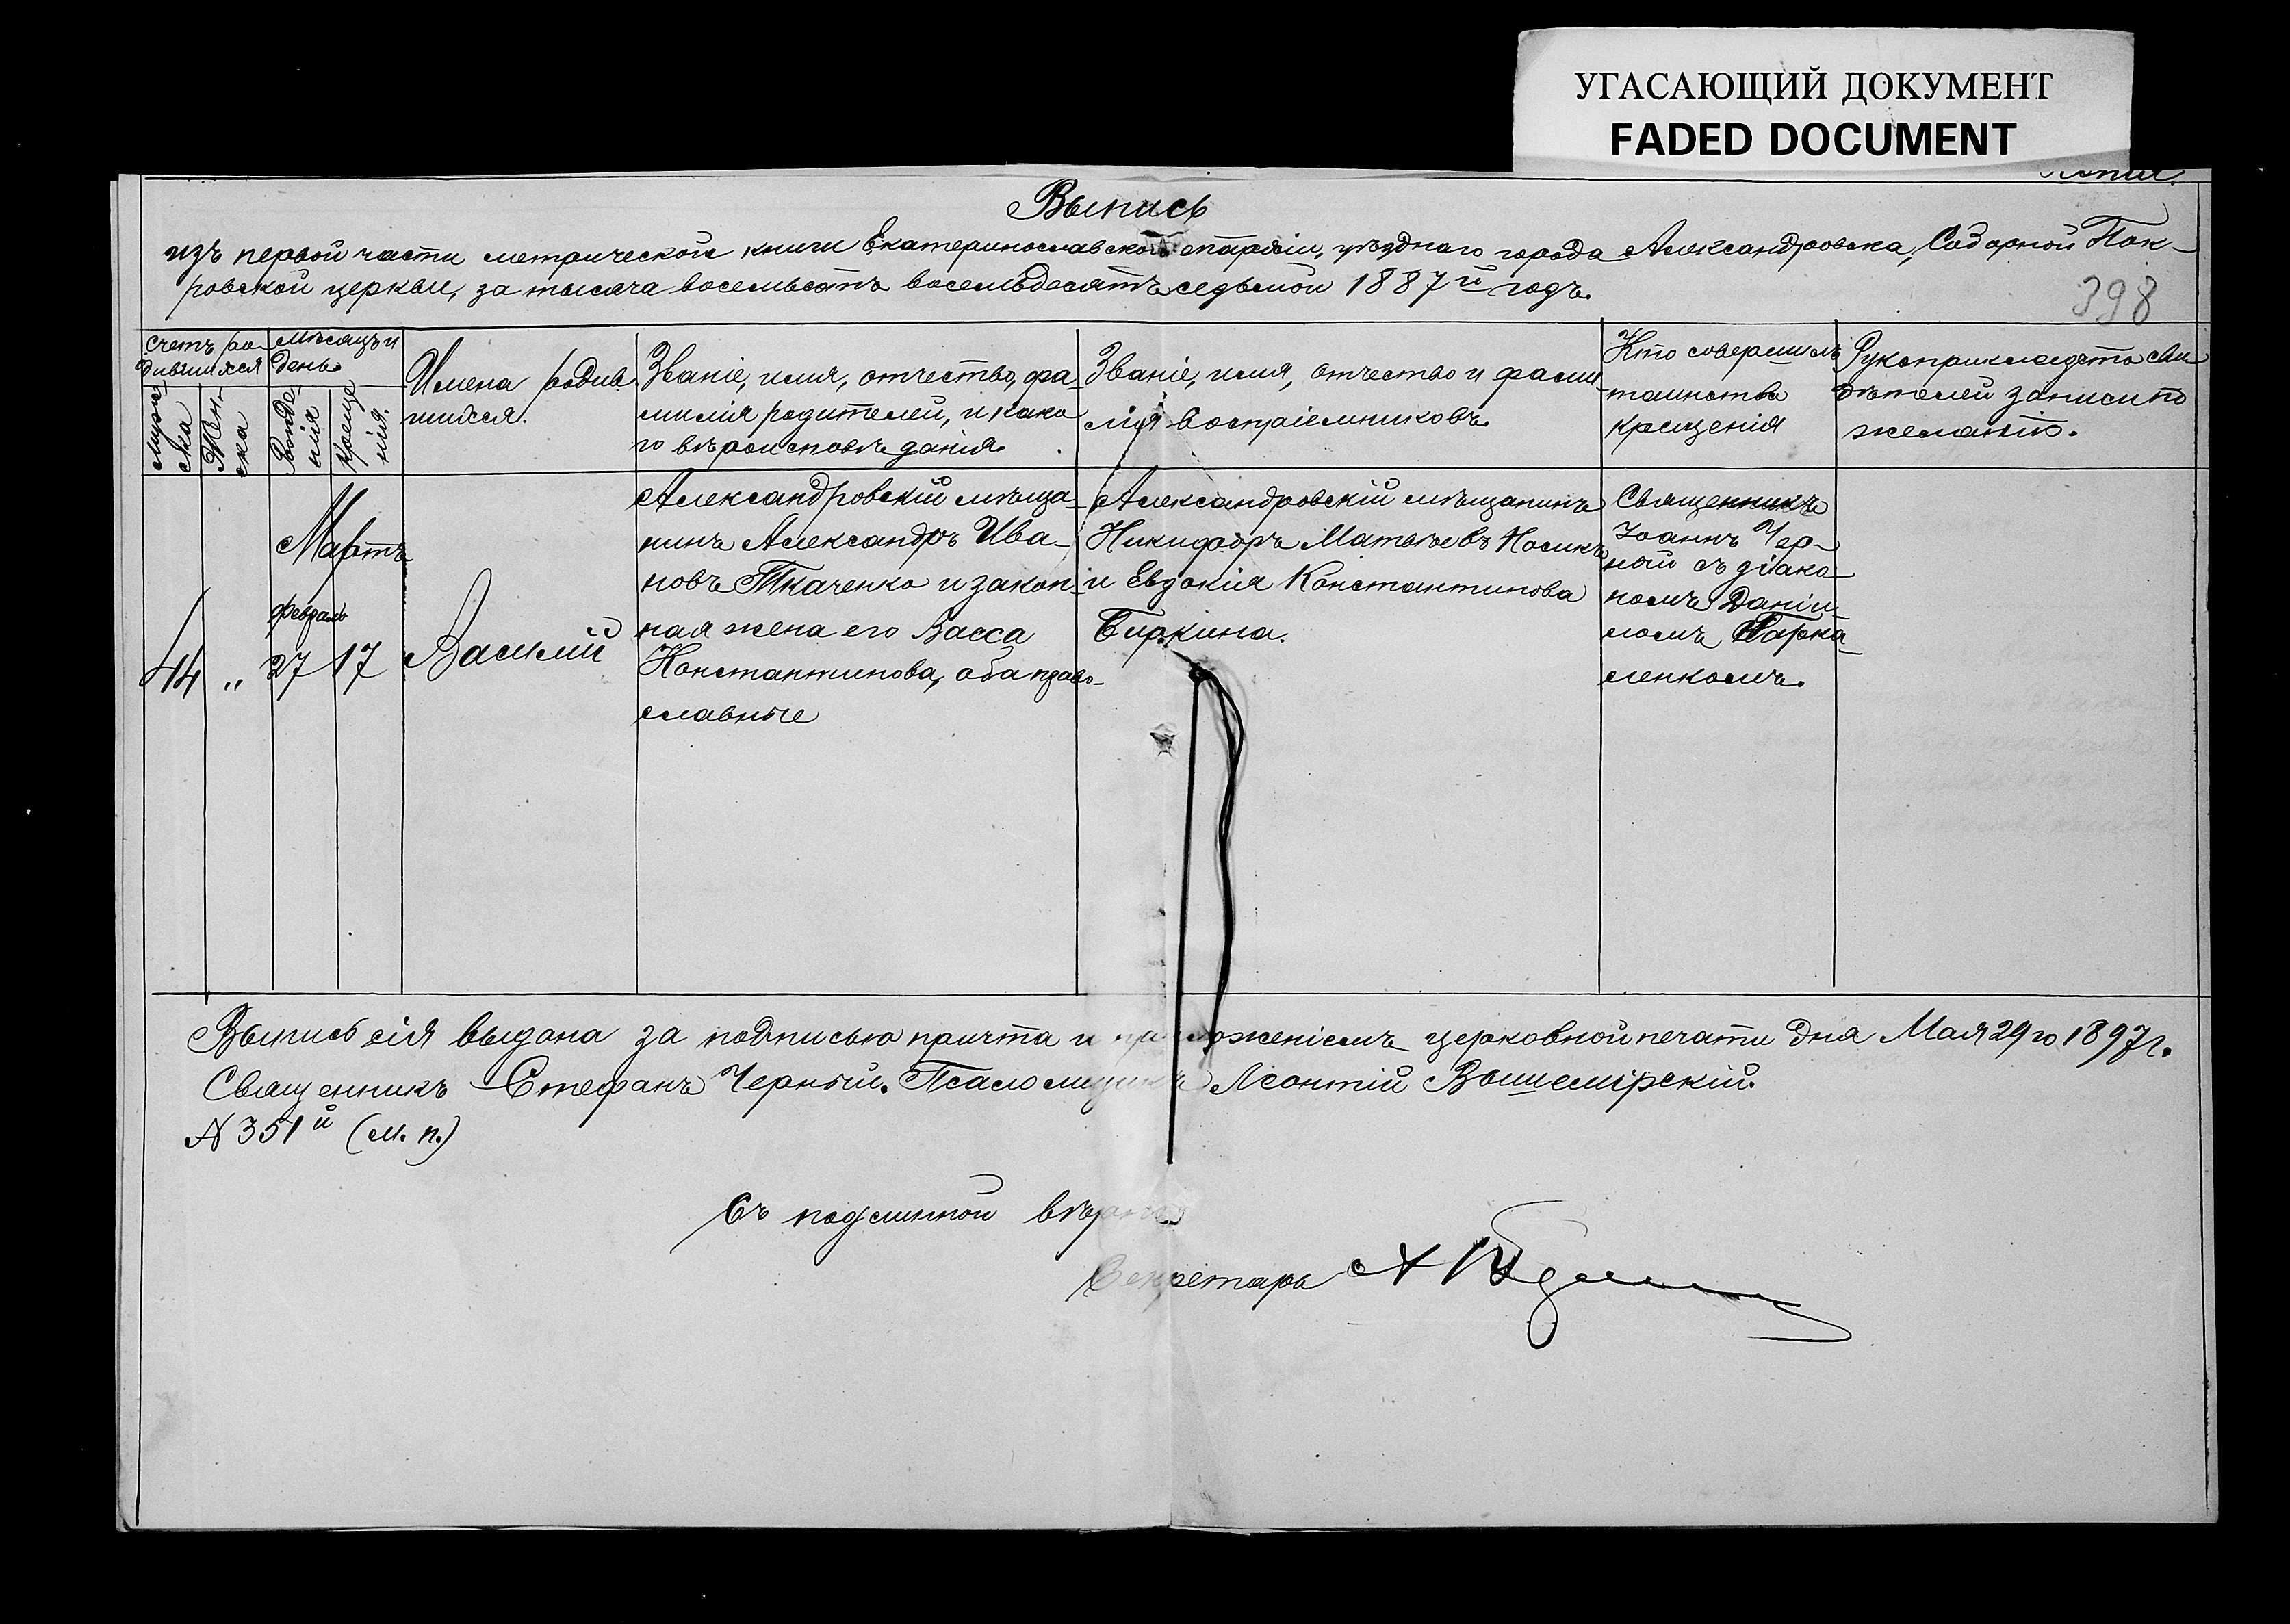 УГАСАЮЩИЙ ДОКУМЕНТ
FADED DOCUMENT
Выпись
изъ первой части метрической книги Екатеринославской епархіи, уѣзднаго города Александровска, Соборной Пок-
ровской церкви, за тысяча восемьсотъ восемьдесятъ седьмой 1887й годъ.
398
Счетъ ро-
дившихся
Мужес
ска
Жен-
ска
Мѣсяцъ и
день.
Рожде-
нія
Креще
нія.
Имена родив
шихся.
Званіе, имя, отчество, фа-
милія родителей, и како
го вѣроисповѣданія.
Званіе, имя, отчество и фами-
лія воспріемниковъ.
Кто совершилъ
таинство
крещенія
Рукоприкладство сви
дѣтелей записи по
желанію.
44
"
Мартъ
февраль
27 17
Василій
Александровскій мѣща-
нинъ Александръ Ива-
новъ Ткаченко и закон-
ная жена его Васса
Константинова, оба право-
славные
Александровскій мѣщанинъ
Никифоръ Матвѣевъ Носикъ
и Евдокія Константинова
Биркина.
Священникъ
Іоаннъ Чер-
ный съ діако-
номъ Даніи-
ломъ
менкомъ.
Выпись сія выдана за подписью причта и приложеніемъ церковной печати дня Мая 29го 1897г.
Священникъ Стефанъ Черный. Псаломщикъ Леонтій Вышемірскій.
№ 351й (м. п.)
Съ подлинной вѣрно
Секретарь